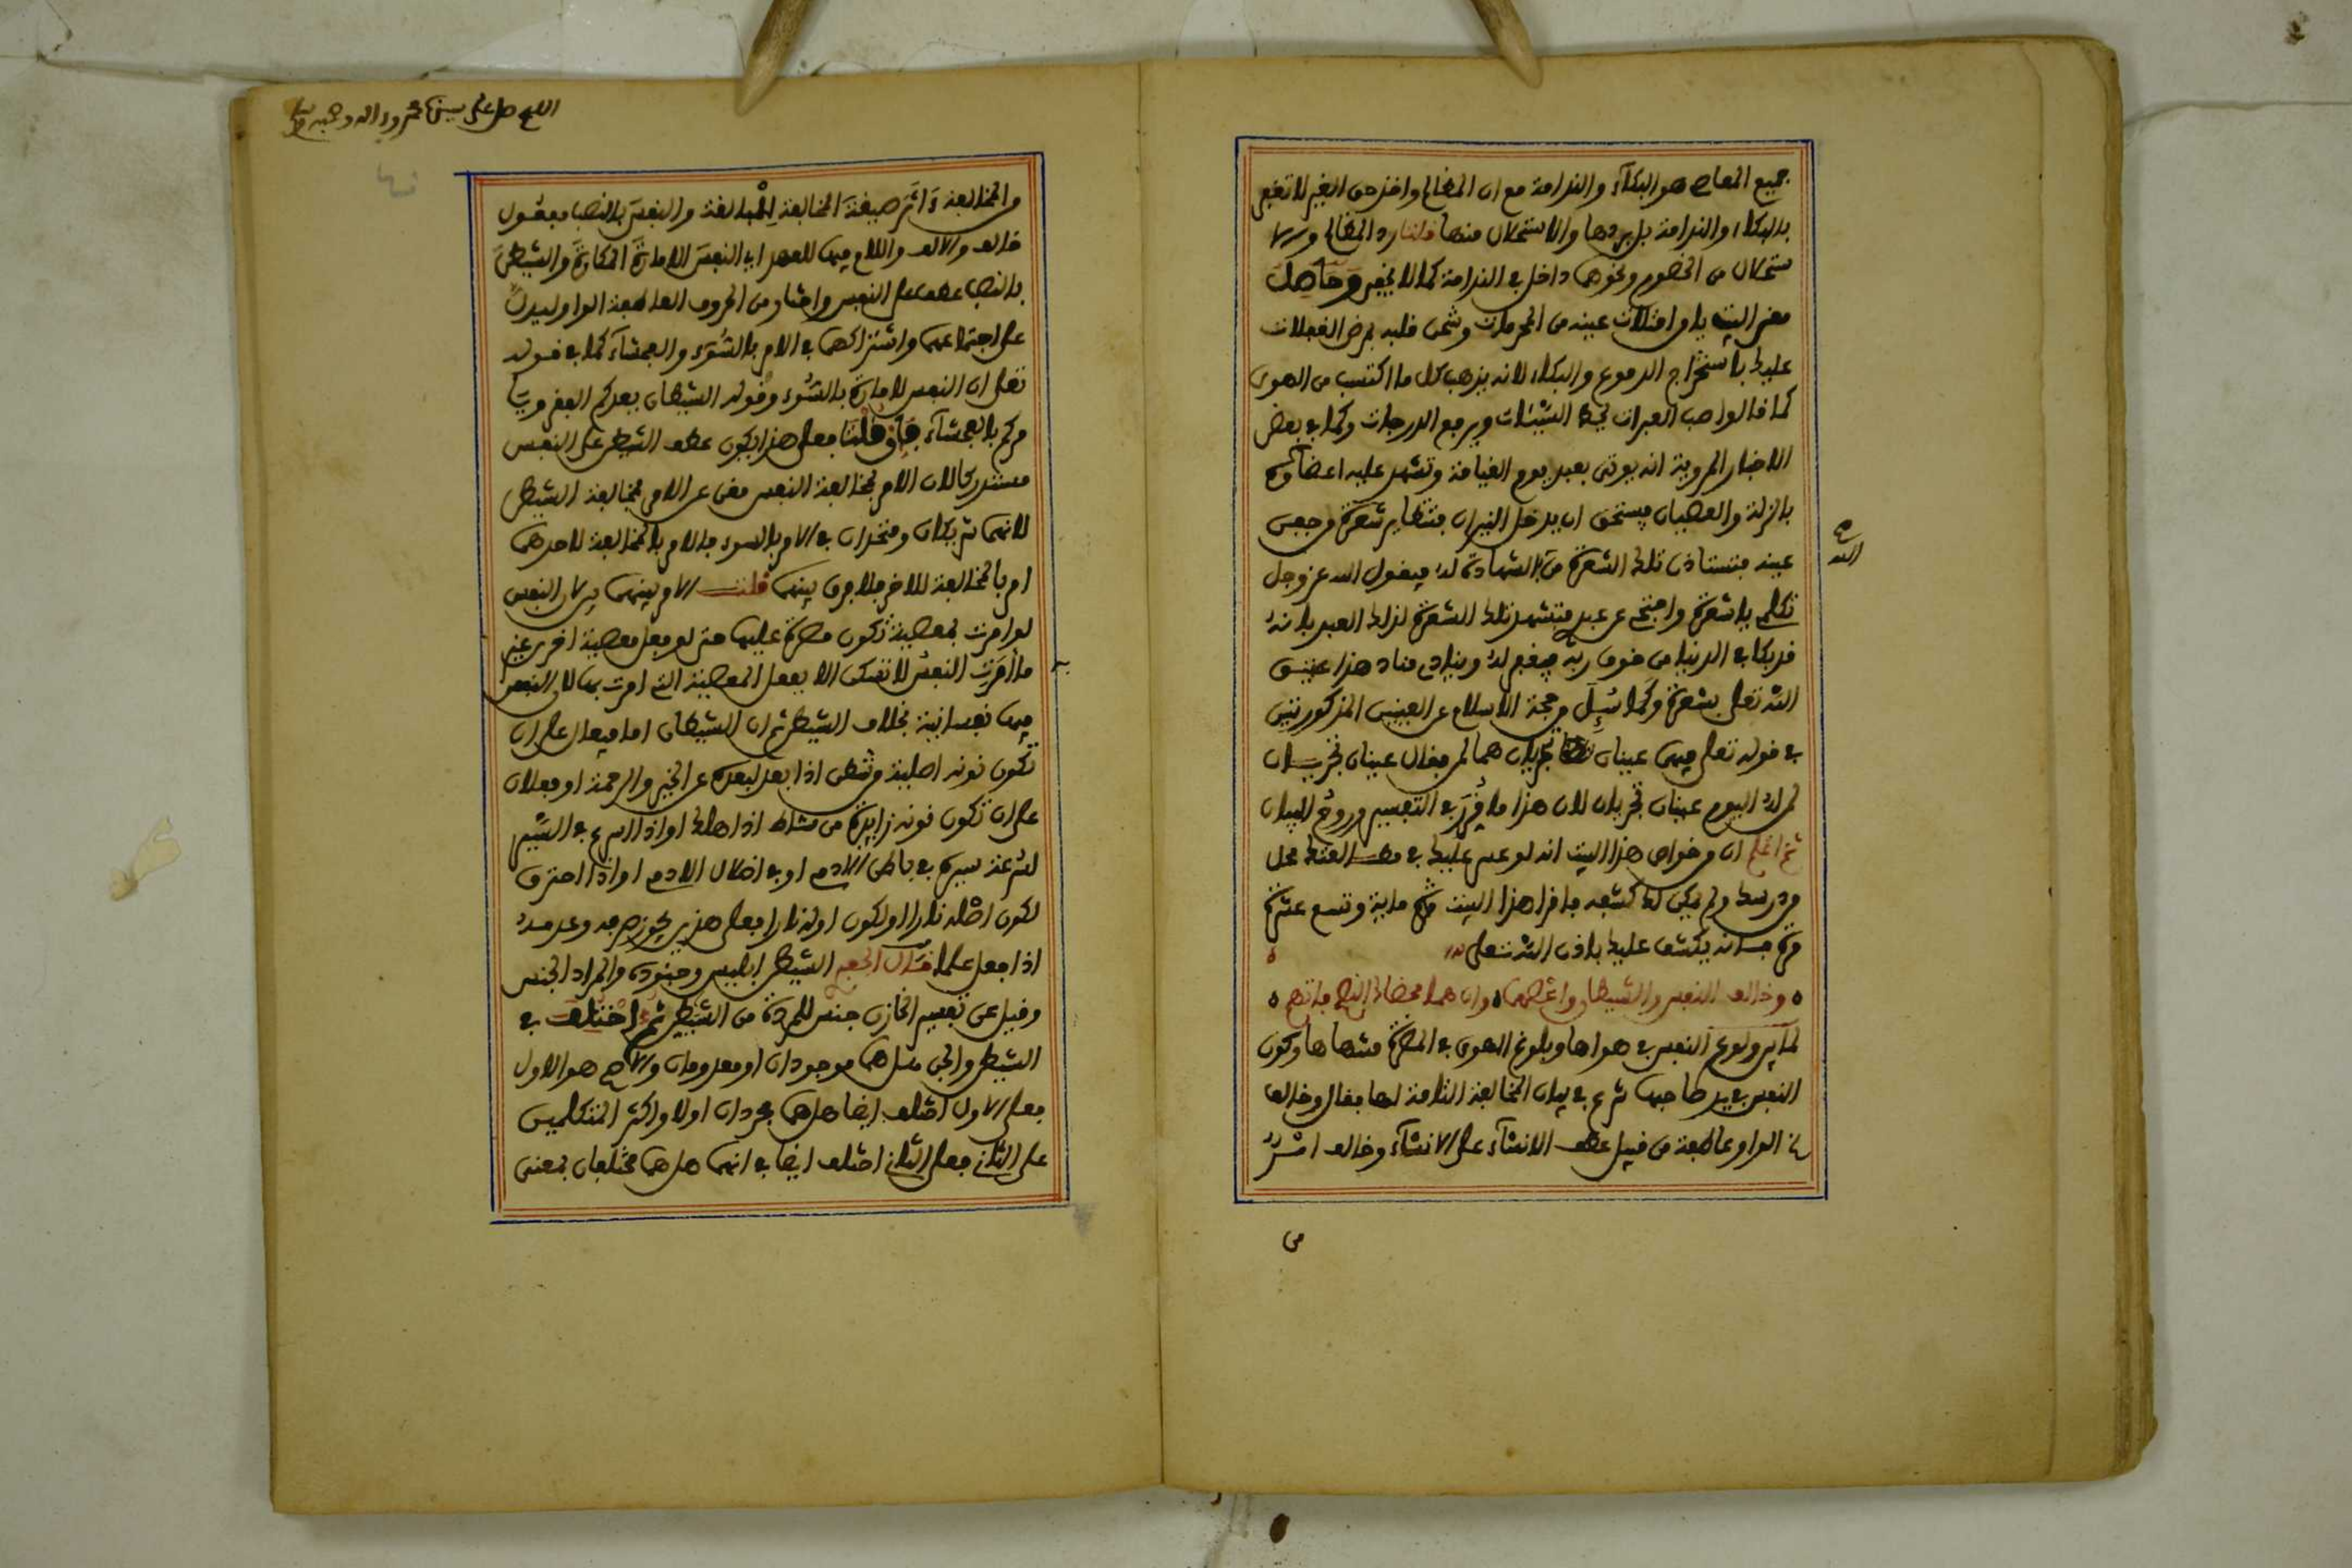 جميع المعاصي هو البكاء والندامة مع ان المظالم واخذ حق الغير لا تغفر
بالبكاء والندامة بل بردها والاستحلال منها قلنا رد المظالم والا
ستحلال من الخصوم ونحوهما داخل في الندامة كما لا يخفى وحاصل
معنى البيت يا من امتلأت عينه من المحرمات وشحن قلبه بمرض الغفلات
عليك باستخراج الدموع والبكاء لانه يذهب كل ما اكتسب من الهوى
كما قالوا صب العبرات يحط السيئات ويرفع الدرجات وكما في بعض
الاخبار المروية انه يوتى بعبد يوم القيامة وتشهد عليه اعضاؤه
بالزلة والعصيان فيستحق ان يدخل النيران فتتطاير شعرة من جفن
عينه فتستاذن تلك الشعرة من الشهادة له فيقول الله عز وجل
تكلم يا شعرة واحتج عن عبدي فتشهد تلك الشعرة لذلك العبد بانه
قد بكا في الدنيا من خوف ربه فيغفر له وينادي مناد هذا عتيق
الله تعلى بشعرة وكما سئل حجة الاسلام عن العينين المذكورتين
في قوله تعلى فيهما عينان تجريان هما لمن فقال عينان تجريان
لمن له اليوم عينان تجريان لان هذا ما قرر في التفسير وروح البيان
ثم اعلم ان من خواص هذا البيت انه لو عسر عليك في محل
من درسك ولم يكن لك كشفه فاقرا هذا البيت مرة ماية وتسع عشرة
مرة فانه يكشف عليك باذن الله تعلى
وخالف النفس والشيطان واعصهما وان هما محضاك النصح فاتهم
لما بين ولوع النفس في هواها وبلوغ الهوى في المضرة منتهاها وكون
النفس في يد صاحبها شرع في بيان المخالفة التامة لها فقال وخالف
الواو عاطفة من قبيل عطف الانشاء على الانشاء وخالف امر
من
الله
صح
اللهم صل على سيدنا محمد وءاله وصحبه
من المخالفة واثر صيغة المخالفة للمبالغة والنفس بالنصب مفعول
خالف والالف واللام فيها للعهد اي النفس الامارة المكارة والشيطن
بالنصب عطف على النفس واختار من الحروف العاطفة الواو ليدل
على اجتماعهما واشتراكهما في الامر بالسوء والفحشاء كما في قوله
تعلى ان النفس لامارة بالسوء وقوله الشيطان يعدكم الفقر ويا
مركم بالفحشاء فإن قلت فعلى هذا يكون عطف الشيطن على النفس
مستدركا لان الامر بمخالفة النفس مغن عن الامر بمخالفة الشيطن
لانهما شريكان ومتحدان في الامر بالسوء فالامر بالمخالفة لاحدهما
امر بالمخالفة للاخر فلا فرق بينهما قلت الامر بينهما لان النفس
لو امرت بمعصية تكون مصرة عليها حتى لو فعل معصية اخرى غير
ما أمرت النفس لا تفتكن الا بفعل المعصية التي امرت بها لان النفس
فيها نفسانية بخلاف الشيطن ثم ان الشيطان اما فيعال على ان
تكون نونه اصلية من شطن اذا بعد لبعده عن الخير والرحمة او فعلان
على ان تكون نونه زايدة من شاط اذا هلك او اذا اسرع في السير
لسرعة سيره في باطن الادم او في اضلال الادم او اذا احترق
لكون اصله نارا او لكون اوله نارا فعلى هذين يجوز صرفه وعدمه
اذا جعل علما فقال الشيطن ابليس وجنوده والمراد الجنس
وقيل عن تفسير الخازن جنس للمردة من الشيطن ثم اختلف في
الشيطن والجن هل هما موجودان او معدومان والاصح هو الاول
فعلى الاول اختلف ايضا هل هما مجردان اولا واكثر المتكلمين
على الثاني فعلى الثاني اختلف ايضا في انهما هل هما مختلفان بمعنى